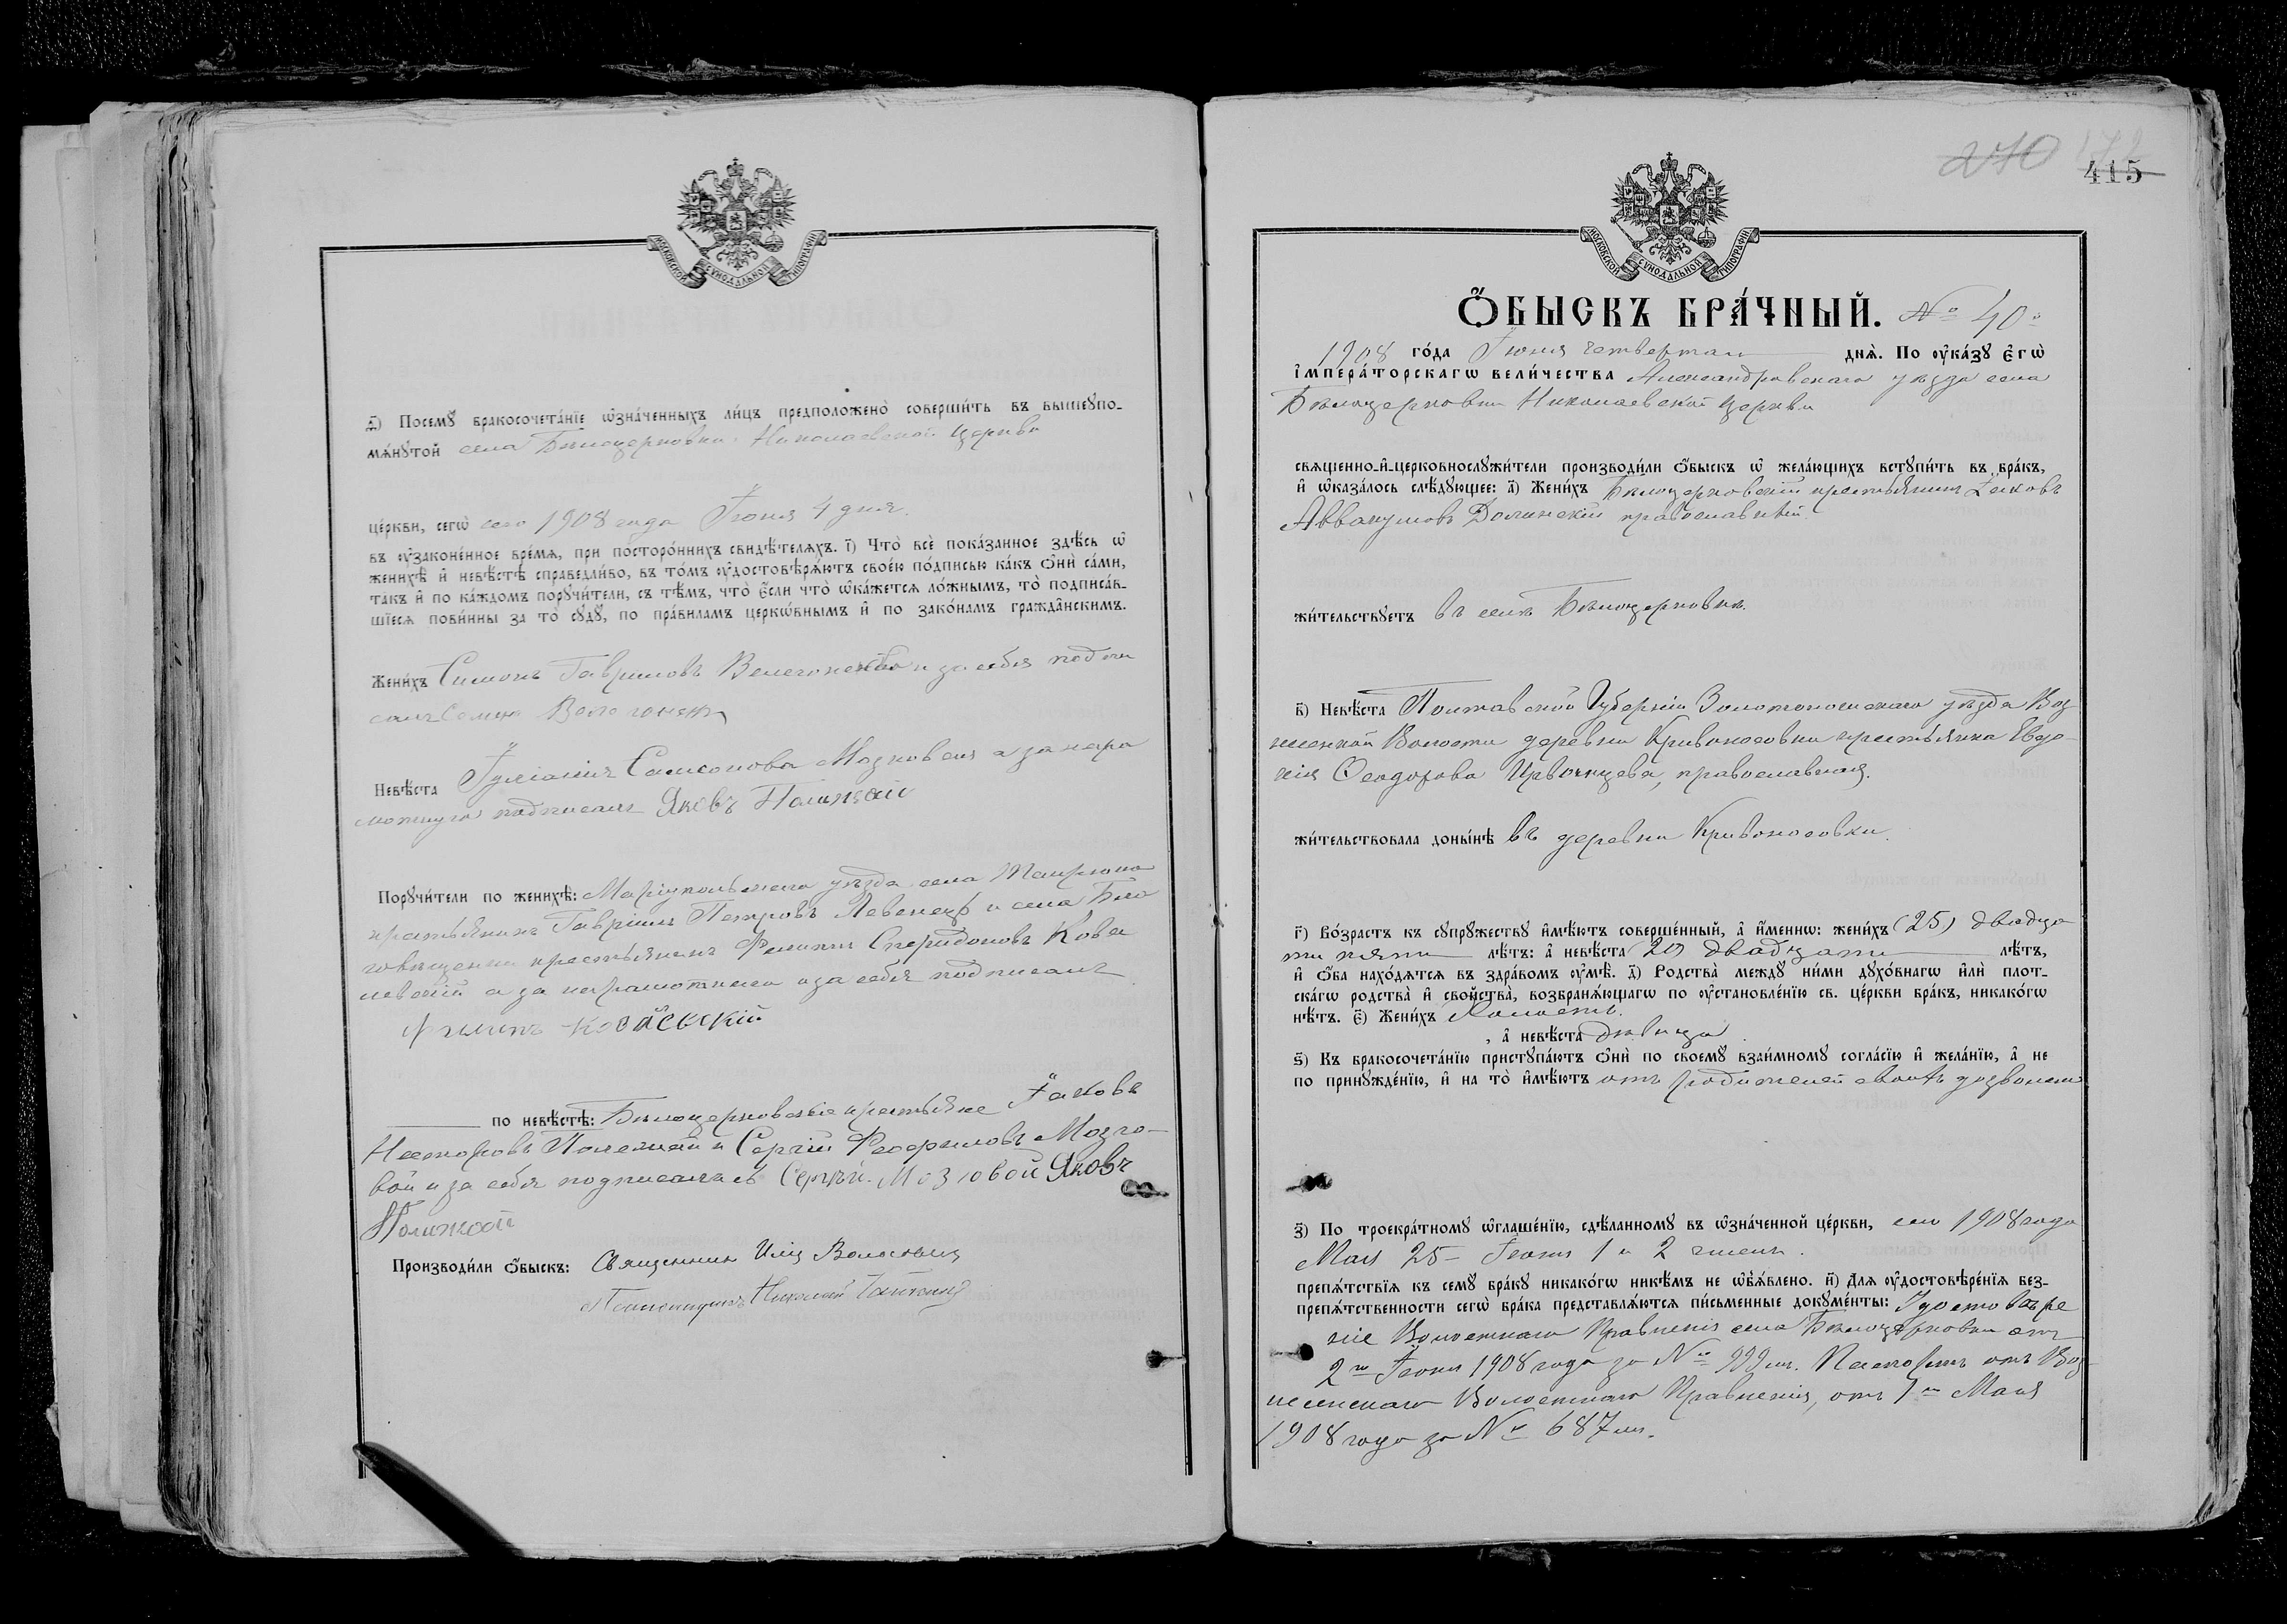 МОСКОВСКОЙ СѴНОДАЛЬНОЙ ТИПОГРАФІИ
ѳ҃) Посемꙋ̀ бракосочета́нїе ѡ҆зна́ченныхъ ли́цъ предположено̀ соверши́ть въ вышеꙋпо-
мѧ́нꙋтой села Бѣлоцерковки Николаевской церкви
це́ркви, сегѡ̀ сего 1908 года Іюня 4 дня.
въ ᲂу҆законе́нное вре́мѧ, при посторо́ннихъ свидѣ́телѧхъ. і҃) Что̀ всѐ пока́занное здѣ́сь ѡ҆
женихѣ̀ и҆ невѣ́стѣ справедли́во, въ то́мъ ᲂу҆достовѣрѧ́ютъ свое́ю по́дписью ка́къ ѻ҆нѝ са́ми,
та́къ и҆ по ка́ждомъ порꙋчи́тели, съ тѣ́мъ, что̀ є҆́сли что̀ ѡ҆ка́жетсѧ ло́жнымъ, то̀ подписа́в-
шїесѧ пови́нны за то̀ сꙋдꙋ̀, по пра́виламъ церкѡ́внымъ и҆ по зако́намъ гражда̑нскимъ.
Жени́хъ Симонъ Гавриловъ и за себя подпи
салъ Семенъ
Невѣ́ста Іуліанія Самсонова Мозговая а за негра
мотную подписалъ Яковъ Полижай
Порꙋчи́тели по женихѣ̀: Маріупольскаго уѣзда села Темрюка
крестьянинъ Гавріилъ Петровъ Левенецъ и села Бла
говѣщенки крестьянинъ Филиппъ Спиридоновъ Кова
левскій а за неграмотнаго и за себя подписалъ
Филипъ
по невѣ́стѣ: Бѣлоцерковскіе крестьяне Іаковъ
Несторовъ Полежай и Сергій Феофиловъ Мозго-
вой и за себя подписались Сергѣй Мозговой Яковъ
Полижай
Производи́ли ѻ҆́быскъ: Священникъ Илія
Псаломщикъ Николай
240
415
МОСКОВСКОЙ СѴНОДАЛЬНОЙ ТИПОГРАФІИ
Ѻ҆́БЫСКЪ БРА́ЧНЫЙ. № 40
1908 го́да Іюня четвертаго днѧ̀. По ᲂу҆ка́зꙋ є҆гѡ̀
і҆мпера́торскагѡ вели́чества Александровскаго уѣзда села
Бѣлоцерковки Николаевской церкви
свѧще́нно-и҆-церковнослꙋжи́тели производи́ли ѻ҆́быскъ ѡ҆ жела́ющихъ встꙋпи́ть въ бра́къ,
и҆ ѡ҆каза́лось слѣ́дꙋющее: а҃) Жени́хъ Бѣлоцерковскій крестьянинъ Іаковъ
Аввакумовъ Долинскій православный
жи́тельствꙋетъ въ селѣ Бѣлоцерковкѣ.
в҃) Невѣ́ста Полтавской Губерніи Золотоношскаго уѣзда Воз
несенской Волости деревни Кривоносовки крестьянка Евдо-
кія Ѳеодорова православная.
жи́тельствовала доны́нѣ въ деревни Кривоносовки.
г҃) Во́зрастъ къ сꙋпрꙋ́жествꙋ и҆мѣ́ютъ соверше́нный, а҆ и҆́менно: жени́хъ (25) двадца
ти пяти лѣ́тъ: а҆ невѣ́ста (20) двадцати лѣ́тъ,
и҆ ѻ҆́ба нахо́дѧтсѧ въ здра́вомъ ᲂу҆мѣ̀. д҃) Родства̀ междꙋ̀ ни́ми дꙋхо́внагѡ и҆лѝ плот-
ска́гѡ родства̀ и҆ свойства̀, возбранѧ́ющагѡ по ᲂу҆становле́нїю св. це́ркви бра́къ, никако́гѡ
нѣ́тъ. є҃) Жени́хъ Холостъ.
, а҆ невѣ́ста дѣвица.
ѕ҃) Къ бракосочета́нїю пристꙋпа́ютъ ѻ҆нѝ по своемꙋ̀ взаи́мномꙋ согла́сїю и҆ жела́нїю, а҆ не
по принꙋжде́нїю, и҆ на то̀ и҆мѣ́ютъ отъ родителей своихъ дозволенія
з҃) По троекра́тномꙋ ѡ҆глаше́нїю, сдѣ́ланномꙋ въ ѡ҆зна́ченной це́ркви, сего 1908 года
Мая 25- Іюня 1 и 2 числъ.
препѧ́тствїѧ къ семꙋ̀ бра́кꙋ никако́гѡ никѣ́мъ не ѡ҆б̾ѧ́влено. и҃) Для ᲂу҆достовѣре́нїѧ без-
препѧ́тственности сегѡ̀ бра́ка представлѧ́ютсѧ пи́сьменные докꙋме́нты: Удостовѣре
ніе Волостнаго Правленія села Бѣлоцерковки отъ
2го Іюня 1908 года за № 999 м. Паспортъ отъ Воз
несенскаго Волостнаго Правленія, отъ 1го Мая
1908 года за № 687 м.